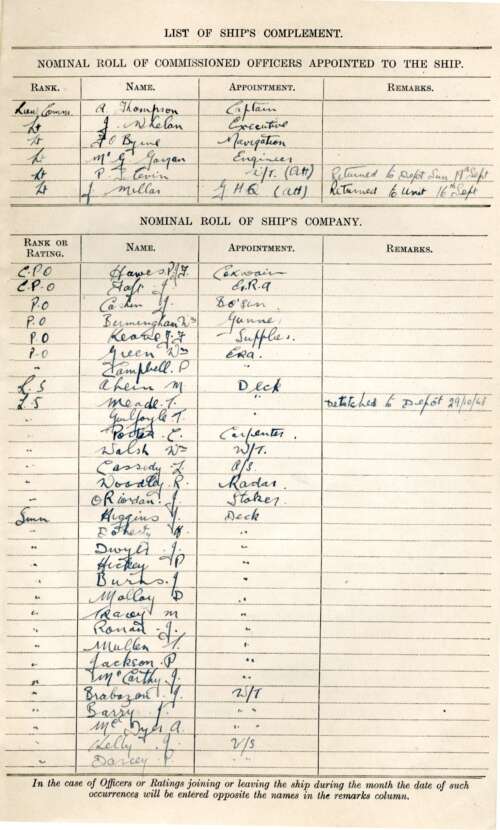 LIST OF SHIP'S COMPLEMENT.
NOMINAL ROLL OF COMMISSIONED OFFICERS APPOINTED TO THE SHIP.
RANK. NAME. APPOINTMENT. REMARKS.
Lieu Comm. A. Thompson Captain
Lt J Whelan Executive
Lt F O Byrne Navigation
Lt Mc G Engineer
Lt P. J. Cevin (Att) Returned to Depot Sun 19th Sept
Lt J Millar G H Q (att) Returned to Unit 16th Sept
NOMINAL ROLL OF SHIP'S COMPANY.
RANK OR RATING. NAME. APPOINTMENT. REMARKS.
C.P.O Hawes Coxswain
C.P.O J. E.R.A
P.O Cashin J. Bo'sun
P.O Bermingham Wm Gunner
P.O Kearns J. J Supplies.
P.O Green Wm ERA.
" Campbell. P
L.S Ahern M Deck
L.S Meade. T. " Detatched to Depôt 29/10/48
" Guilfoyle T. "
" Porter. C. Carpenter.
" Walsh Wm W/T.
" Cassidy L A/S.
" Woodley. R. Radar.
" O Riordan. J. Stoker
Smn Higgins J. Deck
" Doherty H. "
" Dwyer J. "
" Hickey P "
" Burns. J "
" Molloy D "
" Tracey M "
" Ronan. J. "
" Mullen T. "
" Jackson. P. "
" McCarthy. J. "
" Brabazon. J. W/T
" Barry J " "
" Mc Tyer A. "
" Kelly J. V/S
" Darcey P "
In the case of Officers or Ratings joining or leaving the ship during the month the date of such
occurrences will be entered opposite the names in the remarks column.